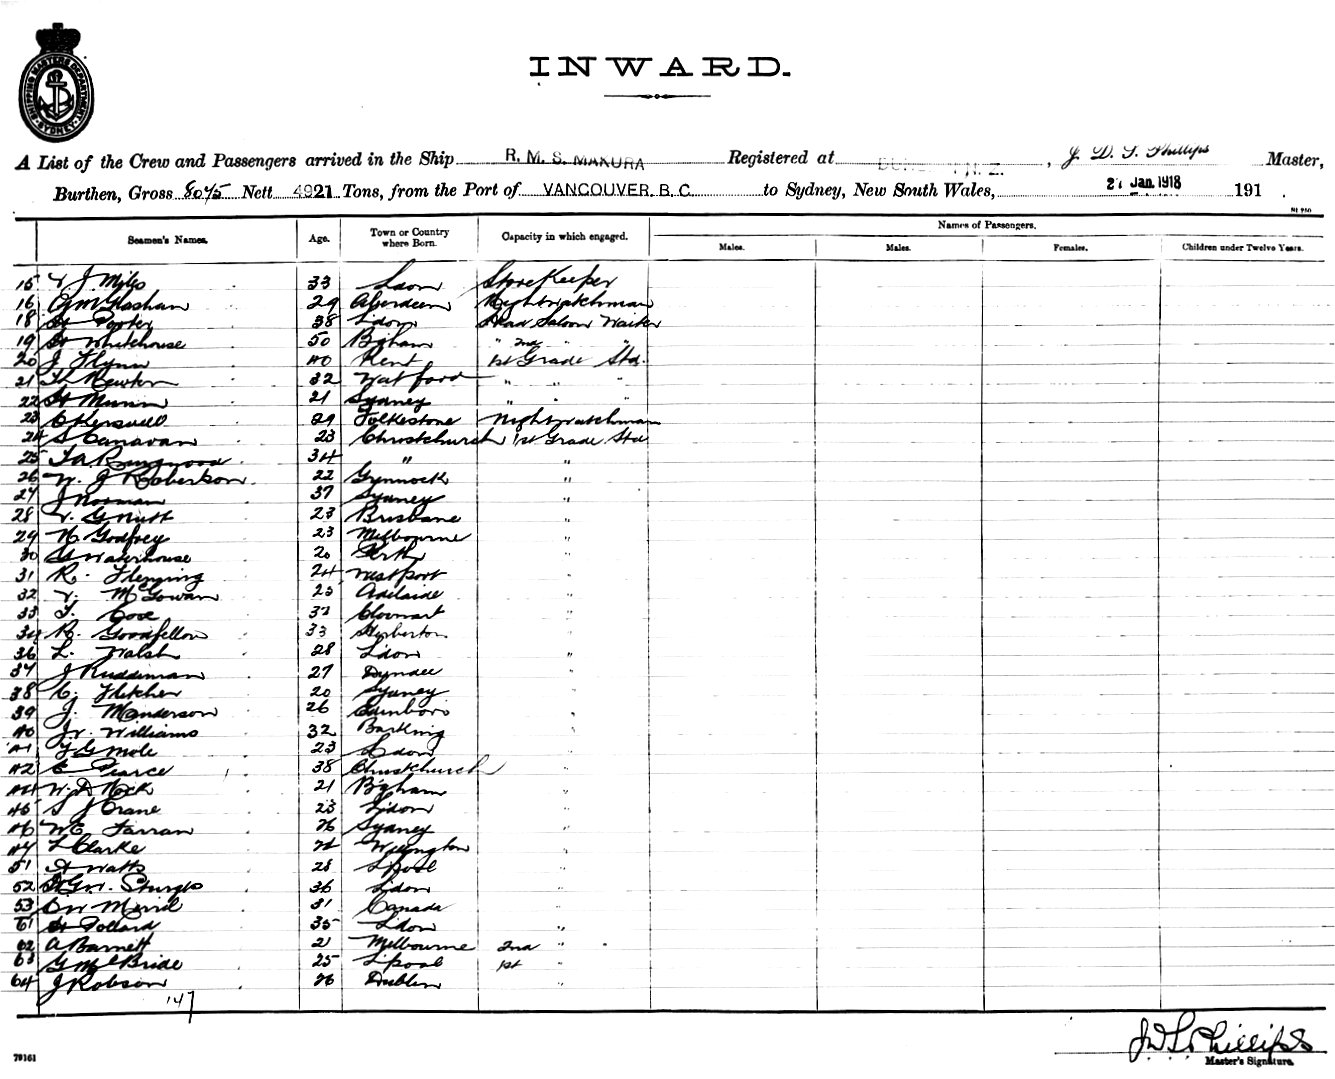 SHIPPING MASTERS DEPARTMENT SYDNEY
INWARD.
A List of the Crew and Passengers arrived in the Ship R. M. S. MAKURA Registered at N. Z., J. D. S. Phillips Master,
Burthen, Gross 8075 Nett 4921 Tons, from the Port of VANCOUVER. B. C. to Sydney, New South Wales, 21 Jan. 1918 191 .
Seamen's Names. Age. Town or Country where Born. Capacity in which engaged. Names of Passengers.
Males. Males. Females. Children under Twelve Years.
15 J. Miles 33 Ldon Storekeeper
16 McGlashan 29 Aberdeen Nightwatchman
18 H Porter 38 Ldon Head Saloon Waiter
19 H Whitehouse 50 Bgham " 2nd " "
20 J Flynn 40 Kent 1st Grade Std.
21 Newton 32 Watford " " "
22 H Munn 21 Sydney " " "
23 C Kerswell 29 Folkestone Nightwatchman
24 S Canavan 23 Christchurch 1st Grade Std
25 F A Ringwood 34 " "
26 W. J Robertson. 22 Gynnock "
27 J Norman 37 Sydney "
28 V. G Nutt 23 Brisbane "
29 N. Godfrey 23 Melbourne "
30 G Waterhouse 20 Perth "
31 R. Fleming 24 Westport "
32 V. McGowan 25 Adelaide "
33 T. Cove 32 "
34 R. Goodfellow 33 Herberton "
36 L. Walsh 28 Ldon "
37 J Ruddiman 27 Dundee "
38 C. Fletcher 20 Sydney "
39 J. Manderson 26 Edinboro "
40 Jr. Williams 32 Barking "
41 F G Mole 23 Ldon "
42 E Pearce 38 Christchurch "
44 W. D Nock 21 Bgham "
45 S J Crane 23 Ldon "
46 W E Farran 26 Sydney "
47 L Clarke 24 Wellington "
51 A Watts 28 Lpool "
52 H G W. Sturgis 36 Ldon "
53 O W Merrid 31 Canada "
61 H Pollard 35 Ldon "
62 A Barnett 21 Melbourne 2nd "
63 G McBride 25 Lpool 1st "
64 J Robson 26 Dublin "
147
J D S Phillips
Master's Signature.
79161